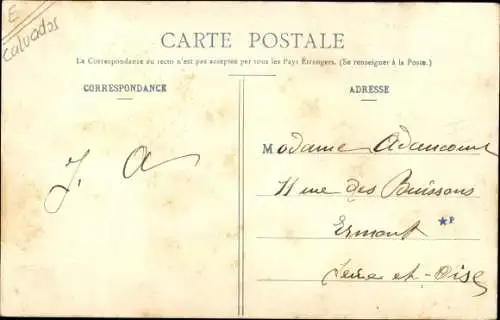 E
Calvados
CARTE POSTALE
La Correspondance au recto n'est pas acceptée par tous les Pays Étrangers. (Se renseigner à la Poste.)
CORRESPONDANCE
ADRESSE
J. A
Madame Adancourt
11 rue des Buissons
Ermont
★P
Seine et-Oise